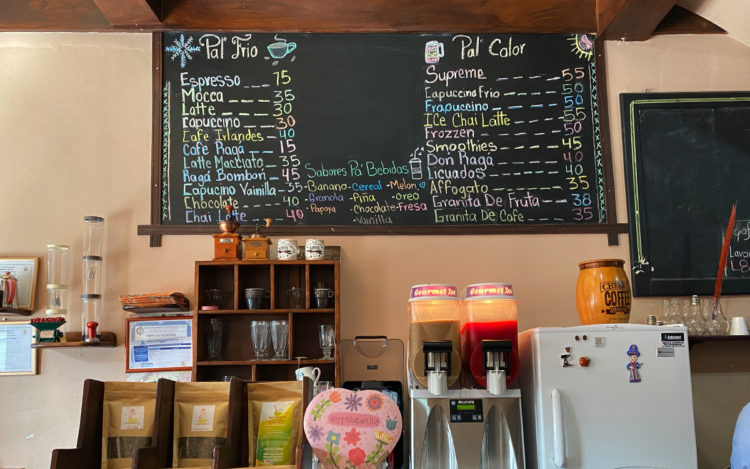 Pal' Frio
Espresso 15
Mocca 35
Latte 30
Capuccino 30
Cafe Irlandes 40
Cafe Raga 15
Latte Macciato 35
Raga Bombon 45
Capucino Vainilla 35
Chocolate 40
Chai Latte 40
Sabores Pa' Bebidas
Banano - Cereal - Melon
Granola - Piña - Oreo
Papaya - Chocolate - Fresa
- Vanilla
Pal' Calor
Supreme 55
Capuccino Frio 50
Frapuccino 50
ICE Chai Latte 55
Frozzen 50
Smoothies 45
Don Raga 40
Licuados 40
Affogato 35
Granita De Fruta 38
Granita De Cafe 35
Gourmet Ice
Gourmet Ice
COFFEE
BUNN